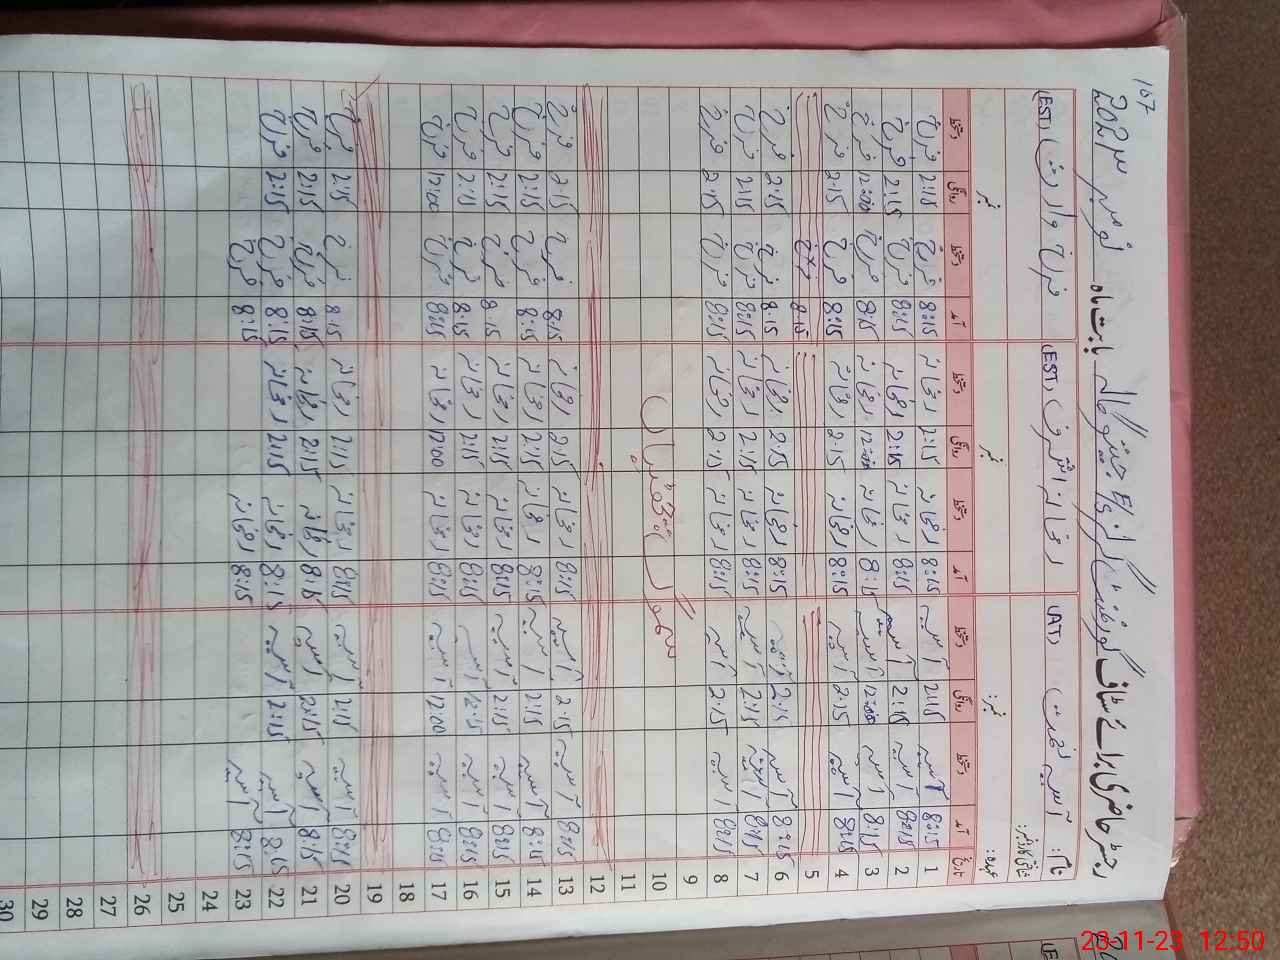 157
رجسٹر حاضری برائے سٹاف گورنمنٹ گرلز E/S بابت ماہ نومبر 2023
نام: آسیہ نصرت (AT) رخسانہ اشرف (EST) فرح وارث (EST)
عہدہ: نمبر: نمبر نمبر
تاریخ آمد دستخط روانگی دستخط آمد دستخط روانگی دستخط آمد دستخط روانگی دستخط
1 8:15 آسیہ 2:15 آسیہ 8:15 رخسانہ 2:15 رخسانہ 8:15 فرح 2:15 فرح
2 8:15 آسیہ 2:15 آسیہ 8:15 رخسانہ 2:15 رخسانہ 8:15 فرح 2:15 فرح
3 8:15 آسیہ 12:00 آسیہ 8:15 رخسانہ 12:00 رخسانہ 8:15 فرح 12:00 فرح
4 8:15 آسیہ 2:15 آسیہ 8:15 رخسانہ 2:15 رخسانہ 8:15 فرح 2:15 فرح
5 8:15 فرح
6 8:15 آسیہ 2:15 آسیہ 8:15 رخسانہ 2:15 رخسانہ 8:15 فرح 2:15 فرح
7 8:15 آسیہ 2:15 آسیہ 8:15 رخسانہ 2:15 رخسانہ 8:15 فرح 2:15 فرح
8 8:15 آسیہ 2:15 آسیہ 8:15 رخسانہ 2:15 رخسانہ 8:15 فرح 2:15 فرح
9
10
11
12
13 8:15 آسیہ 2:15 آسیہ 8:15 رخسانہ 2:15 رخسانہ 8:15 فرح 2:15 فرح
14 8:15 آسیہ 2:15 آسیہ 8:15 رخسانہ 2:15 رخسانہ 8:15 فرح 2:15 فرح
15 8:15 آسیہ 2:15 آسیہ 8:15 رخسانہ 2:15 رخسانہ 8:15 فرح 2:15 فرح
16 8:15 آسیہ 2:15 آسیہ 8:15 رخسانہ 2:15 رخسانہ 8:15 فرح 2:15 فرح
17 8:15 آسیہ 12:00 آسیہ 8:15 رخسانہ 12:00 رخسانہ 8:15 فرح 12:00 فرح
18
19
20 8:15 آسیہ 2:15 آسیہ 8:15 رخسانہ 2:15 رخسانہ 8:15 فرح 2:15 فرح
21 8:15 آسیہ 2:15 آسیہ 8:15 رخسانہ 2:15 رخسانہ 8:15 فرح 2:15 فرح
22 8:15 آسیہ 2:15 آسیہ 8:15 رخسانہ 2:15 رخسانہ 8:15 فرح 2:15 فرح
23 8:15 آسیہ 8:15 رخسانہ 8:15 فرح
24
25
26
27
28
29
30
23-11-23 12:50